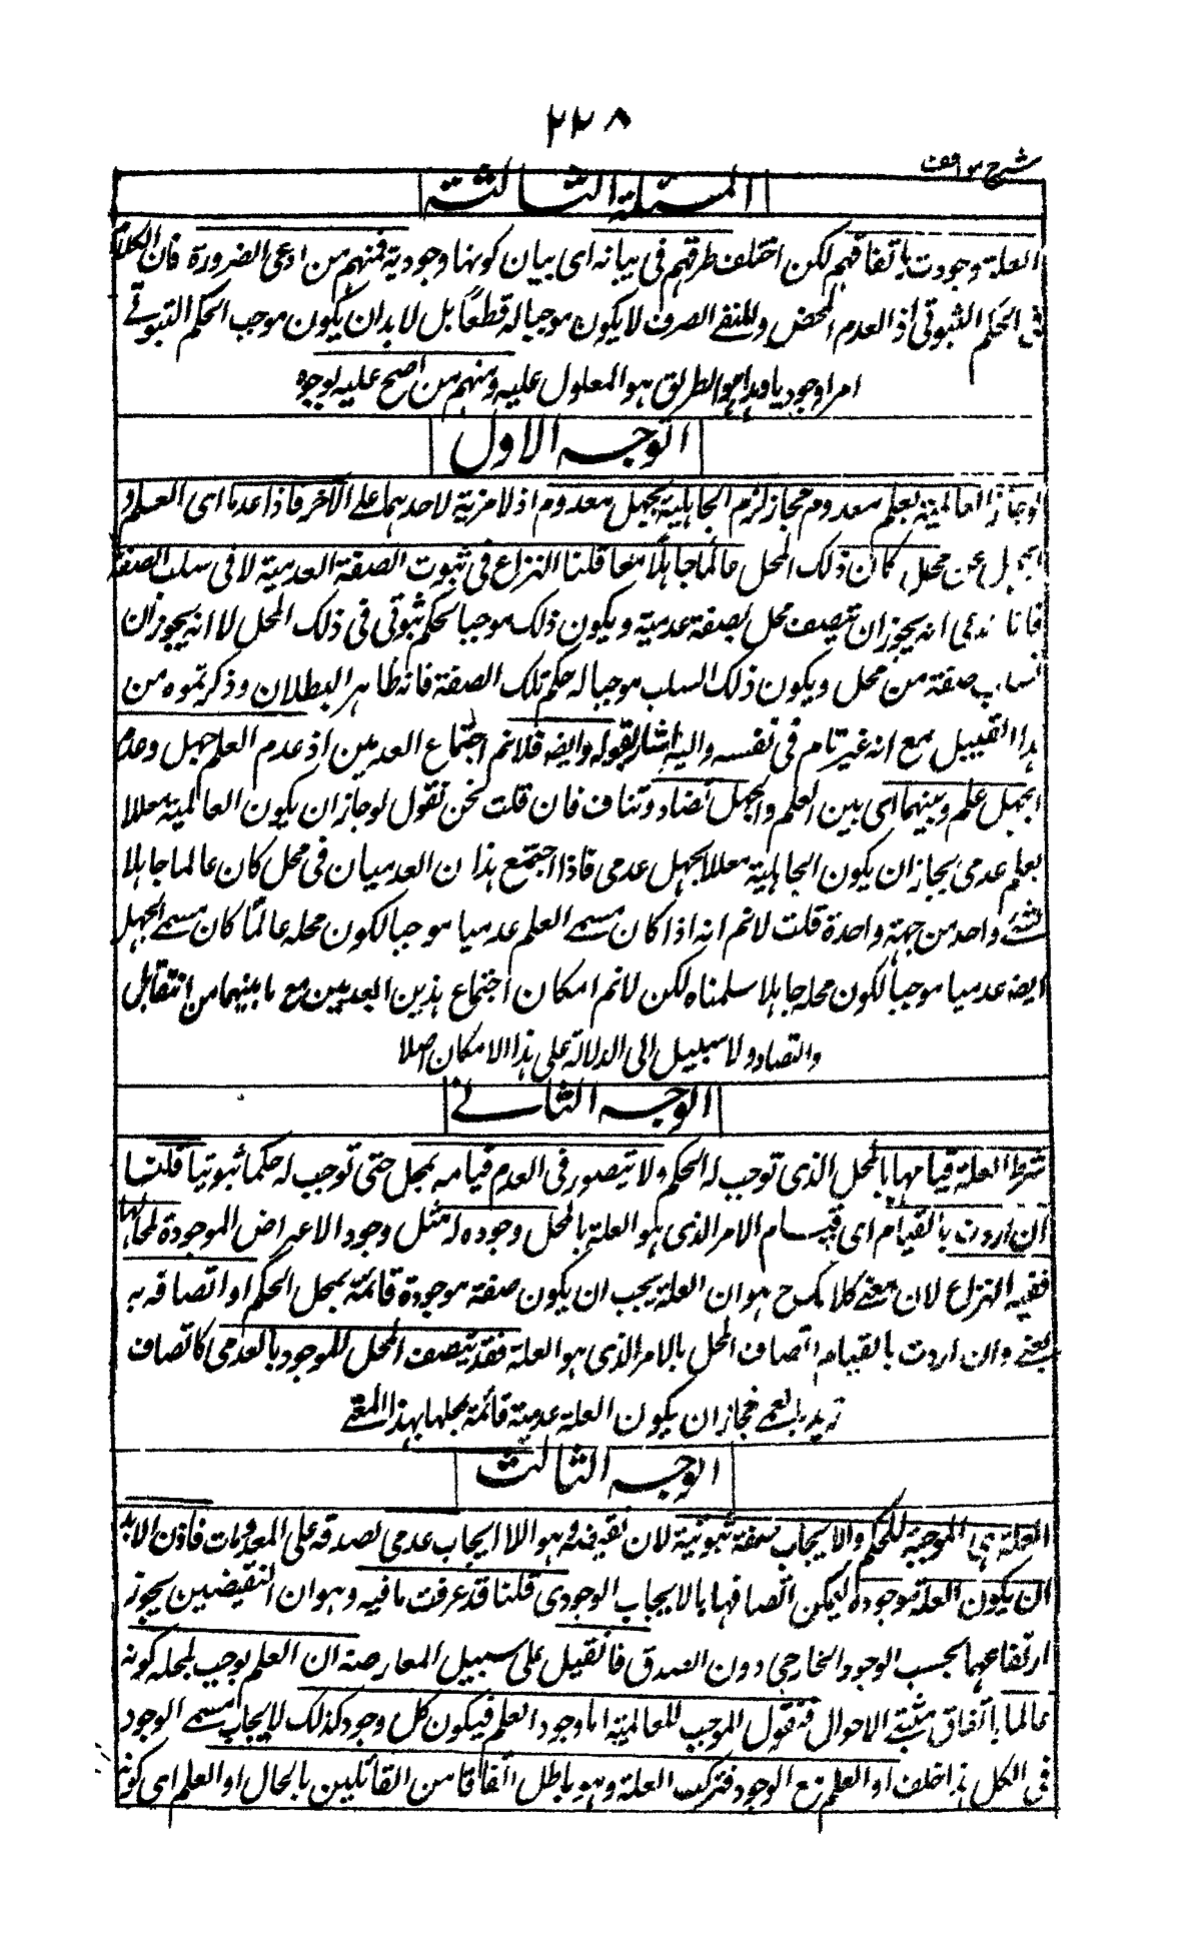 ٢٢٨
شرح مواقف
المسئلة الثالثة
العلة وجودية باتفاقهم لكن اختلف طرقهم في بيانه اى بيان كونها وجودية فمنهم من ادعى الضرورة فان الكلام
في الحكم الثبوتي اذ العدم المحض والنفي الصرف لا يكون موجبا له قطعا بل لا بد ان يكون موجب الحكم الثبوتي
امرا وجوديا وهذا هو الطريق هو المعول عليه ومنهم من احتج عليه بوجوه
الوجه الاول
لو جاز العالمية بعلم معدوم لجاز لزم الجاهلية بجهل معدوم اذ لا مزية لاحدهما على الآخر فاذا عدما اى العلم و
الجهل عن محل كان ذلك المحل عالما جاهلا معا قلنا النزاع في ثبوت الصفة العدمية لا في سلب الصفة
فانا ندعى انه يجوز ان يتصف محل بصفة عدمية ويكون ذلك موجبا لحكم ثبوتي في ذلك المحل لا انه يجوز ان
تسلب صفة من محل ويكون ذلك السلب موجبا له حكم تلك الصفة فانه ظاهر البطلان وذكرتموه من
هذا القبيل مع انه غير تام في نفسه واليه اشار بقوله وايضه فلانم اجتماع العدمين اذ عدم العلم جهل وعدم
الجهل علم وبينهما اى بين العلم والجهل تضاد وتناف فان قلت نحن نقول لو جاز ان يكون العالمية معللا
بعلم عدمي لجاز ان يكون الجاهلية معللا بجهل عدمي فاذا اجتمع هذان العدميان في محل كان عالما جاهلا
بشئ واحد من جهة واحدة قلت لانم انه اذا كان مسمى العلم عدميا موجبا لكون محله عالما كان مسمى الجهل
ايضه عدميا موجبا لكون محله جاهلا سلمناه لكن لانم امكان اجتماع هذين العدمين مع ما بينهما من التقابل
والتضاد ولا سبيل الى الدلالة على هذا الامكان اصلا
الوجه الثاني
شرط العلة قيامها بالمحل الذى توجب له الحكم ولا يتصور في العدم قيامه بمحل حتى توجب له حكما ثبوتيا قلت
ان اردت بالقيام اى قيام الامر الذى هو العلة بالمحل وجوده له مثل وجود الاعراض الموجودة لمحالها
ففيه النزاع لان معنى كلامكم ح هو ان العلة يجب ان يكون صفة موجودة قائمة بمحل الحكم او اتصافه به
يعنى وان اردت بالقيام اتصاف المحل بالامر الذى هو العلة فقد يتصف المحل الموجود بالعدمي كاتصاف
زيد بالعمى فجاز ان يكون العلة عدمية قائمة بمحلها بهذا المعنى
الوجه الثالث
العلة هي الموجبة للحكم والايجاب صفة ثبوتية لان نقيضه وهو اللا ايجاب عدمي لصدقه على المعدومات فاذن لا بد
ان يكون العلة موجودة ليمكن اتصافها بالايجاب الوجودى قلنا قد عرفت ما فيه وهو ان النقيضين يجوز
ارتفاعهما بحسب الوجود الخارجي دون الصدق فان قيل على سبيل المعارضة ان العلم يوجب لمحله كونه
عالما باتفاق مثبتي الاحوال فنقول الموجب للعالمية اما وجود العلم فيكون كل وجود كذلك لايجاب مسمى الوجود
في الكل هذا خلف او العلم مع الوجود فتركب العلة وهو باطل اتفاقا من القائلين بالحال او العلم اى كونه